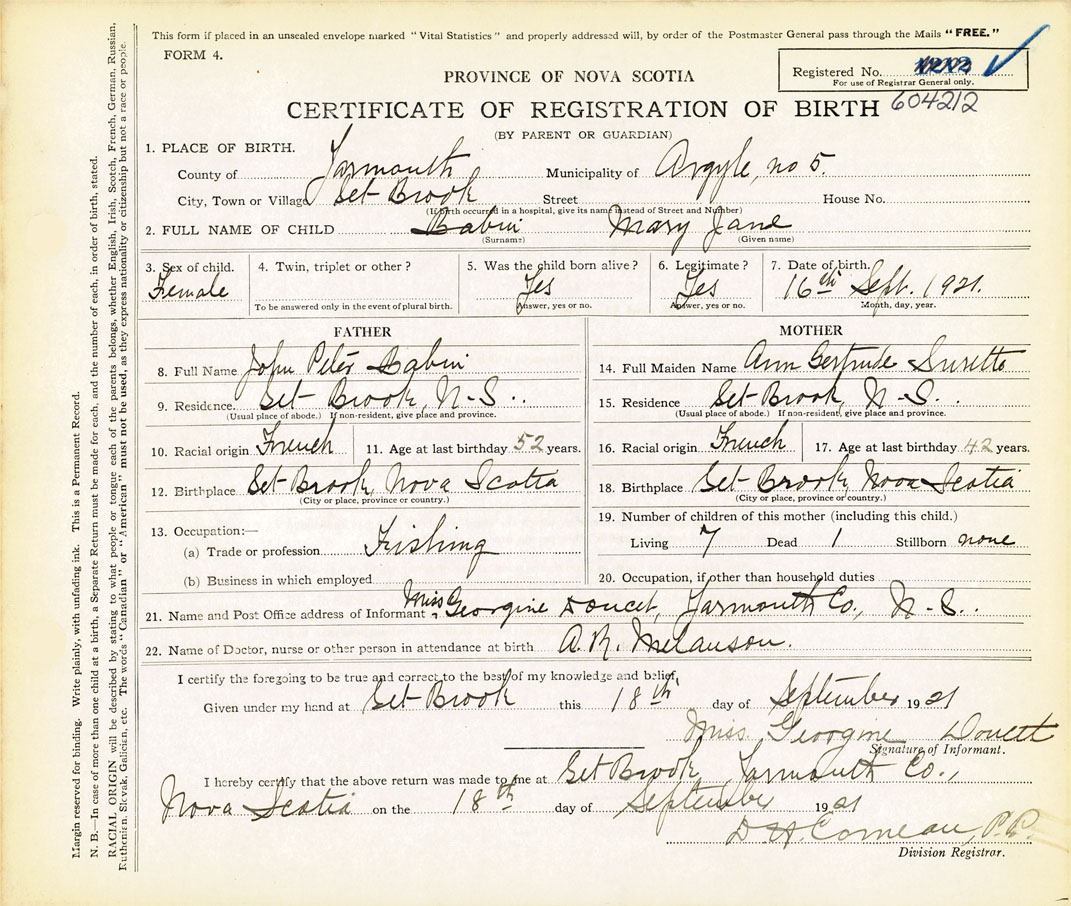 This form if placed in an unsealed envelope marked "Vital Statistics" and properly addressed will, by order of the Postmaster General pass through the Mails "FREE."
FORM 4.
Registered No.
For use of Registrar General only.
604212
PROVINCE OF NOVA SCOTIA
CERTIFICATE OF REGISTRATION OF BIRTH
(BY PARENT OR GUARDIAN)
1. PLACE OF BIRTH.
County of Yarmouth Municipality of Argyle, no 5.
City, Town or Village Set-Brook Street House No.
(If birth occurred in a hospital, give its name instead of Street and Number)
2. FULL NAME OF CHILD Babin Mary Jane
(Surname) (Given name)
3. Sex of child. 4. Twin, triplet or other? 5. Was the child born alive? 6. Legitimate? 7. Date of birth.
Female Yes Yes 16th Sept. 1921.
To be answered only in the event of plural birth. Answer, yes or no. Answer, yes or no. Month, day, year.
FATHER
8. Full Name John Peter Babin
9. Residence. Set-Brook, N-S.
(Usual place of abode.) If non-resident, give place and province.
10. Racial origin French 11. Age at last birthday 52 years.
12. Birthplace Set-Brook, Nova Scotia
(City or place, province or country.)
13. Occupation:—
(a) Trade or profession Fishing
(b) Business in which employed
MOTHER
14. Full Maiden Name Ann Gertrude Surette
15. Residence Set-Brook, N-S.
(Usual place of abode.) If non-resident, give place and province.
16. Racial origin French 17. Age at last birthday 42 years.
18. Birthplace Set-Brook, Nova Scotia
(City or place, province or country.)
19. Number of children of this mother (including this child.)
Living 7 Dead 1 Stillborn none
20. Occupation, if other than household duties
21. Name and Post Office address of Informant Miss Georgine Doucet, Yarmouth Co., N-S.
22. Name of Doctor, nurse or other person in attendance at birth A. R. Melanson.
I certify the foregoing to be true and correct to the best of my knowledge and belief,
Given under my hand at Set-Brook this 18th day of September 1921
Miss Georgine Doucett
Signature of Informant.
I hereby certify that the above return was made to me at Set Brook, Yarmouth Co.,
Nova Scotia on the 18th day of September 1921
D. H. Comeau, P.P.
Division Registrar.
Margin reserved for binding. Write plainly, with unfading ink. This is a Permanent Record.
N. B.—In case of more than one child at a birth, a Separate Return must be made for each, and the number of each, in order of birth, stated.
RACIAL ORIGIN will be described by stating to what people or tongue each of the parents belongs, whether English, Irish, Scotch, French, German, Russian,
Ruthenian, Slovak, Galician, etc. The words "Canadian" or "American" must not be used, as they express nationality or citizenship but not a race or people.